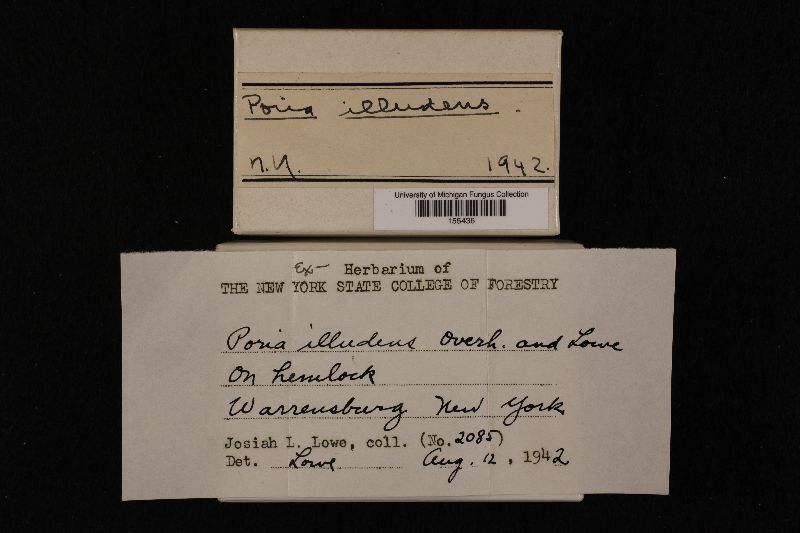 Poria illudens.
N.Y. 1942.
University of Michigan Fungus Collection
155436
Ex- Herbarium of
THE NEW YORK STATE COLLEGE OF FORESTRY
Poria illudens Overh. and Lowe
On hemlock
Warrensburg New York
Josiah L. Lowe, coll. (No. 2085)
Det. Lowe Aug. 12, 1942